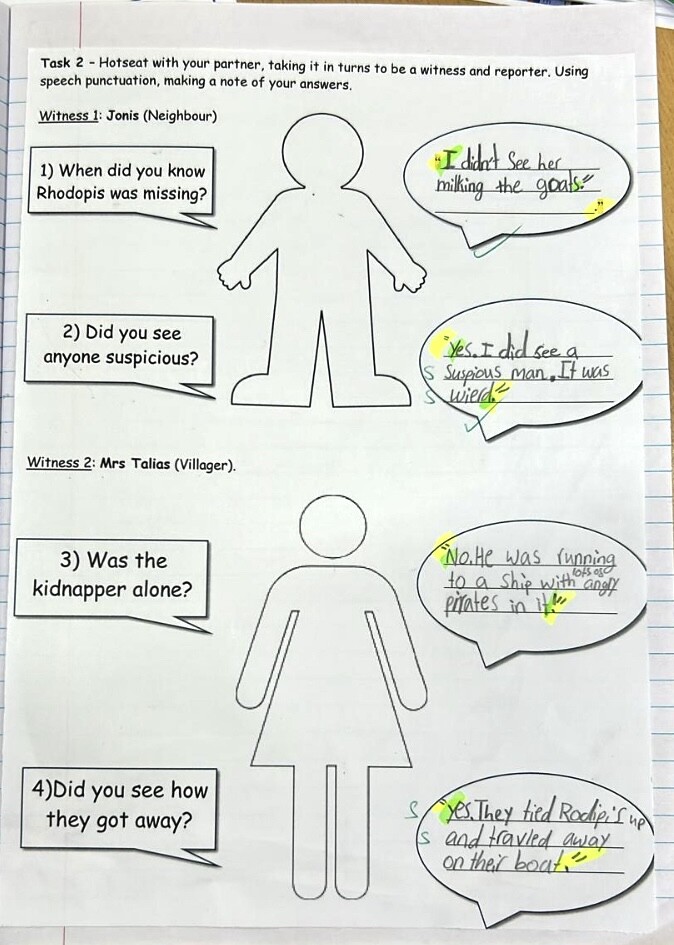 Task 2 - Hotseat with your partner, taking it in turns to be a witness and reporter. Using
speech punctuation, making a note of your answers.
Witness 1: Jonis (Neighbour)
1) When did you know
Rhodopis was missing?
"I didn't See her
milking the goats."
."
2) Did you see
anyone suspicious?
"Yes. I did see a
S Suspious man. It was
S wierd."
Witness 2: Mrs Talias (Villager).
3) Was the
kidnapper alone?
"No. He was running
to a ship with lots os angry
pirates in it."
4)Did you see how
they got away?
S "yes. They tied Rodipi's up
S and travled away
on their boat."